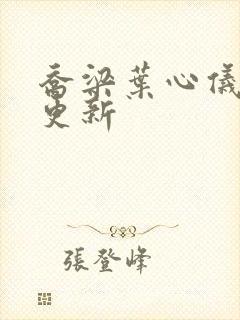 喬梁葉心儀
更新
張登峰